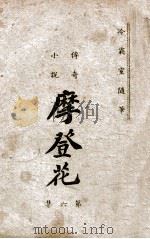 冷裳室隨筆
傳奇
小說
摩登花
集六第